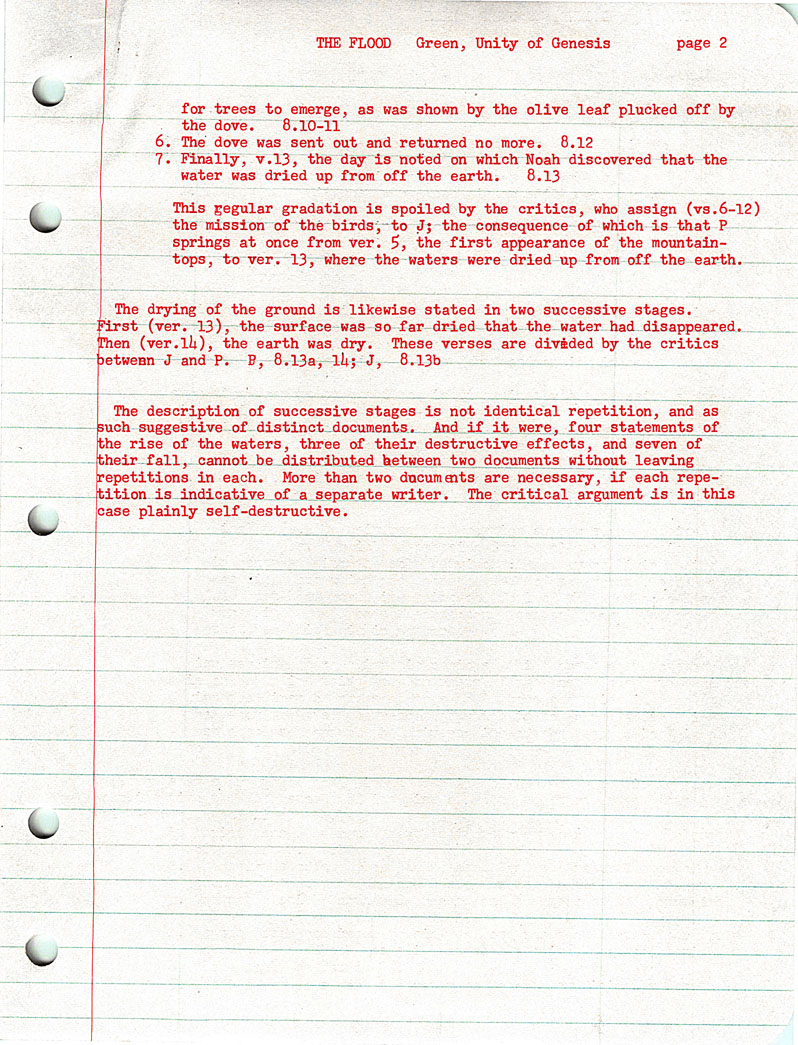 THE FLOOD Green, Unity of Genesis page 2
for trees to emerge, as was shown by the olive leaf plucked off by
the dove. 8.10-11
6. The dove was sent out and returned no more. 8.12
7. Finally, v.13, the day is noted on which Noah discovered that the
water was dried up from off the earth. 8.13
This regular gradation is spoiled by the critics, who assign (vs.6-12)
the mission of the birds, to J; the consequence of which is that P
springs at once from ver. 5, the first appearance of the mountain-
tops, to ver. 13, where the waters were dried up from off the earth.
The drying of the ground is likewise stated in two successive stages.
First (ver. 13), the surface was so far dried that the water had disappeared.
Then (ver.14), the earth was dry. These verses are divided by the critics
between J and P. P, 8.13a, 14; J, 8.13b
The description of successive stages is not identical repetition, and as
such suggestive of distinct documents. And if it were, four statements of
the rise of the waters, three of their destructive effects, and seven of
their fall, cannot be distributed between two documents without leaving
repetitions in each. More than two documents are necessary, if each repe-
tition is indicative of a separate writer. The critical argument is in this
case plainly self-destructive.